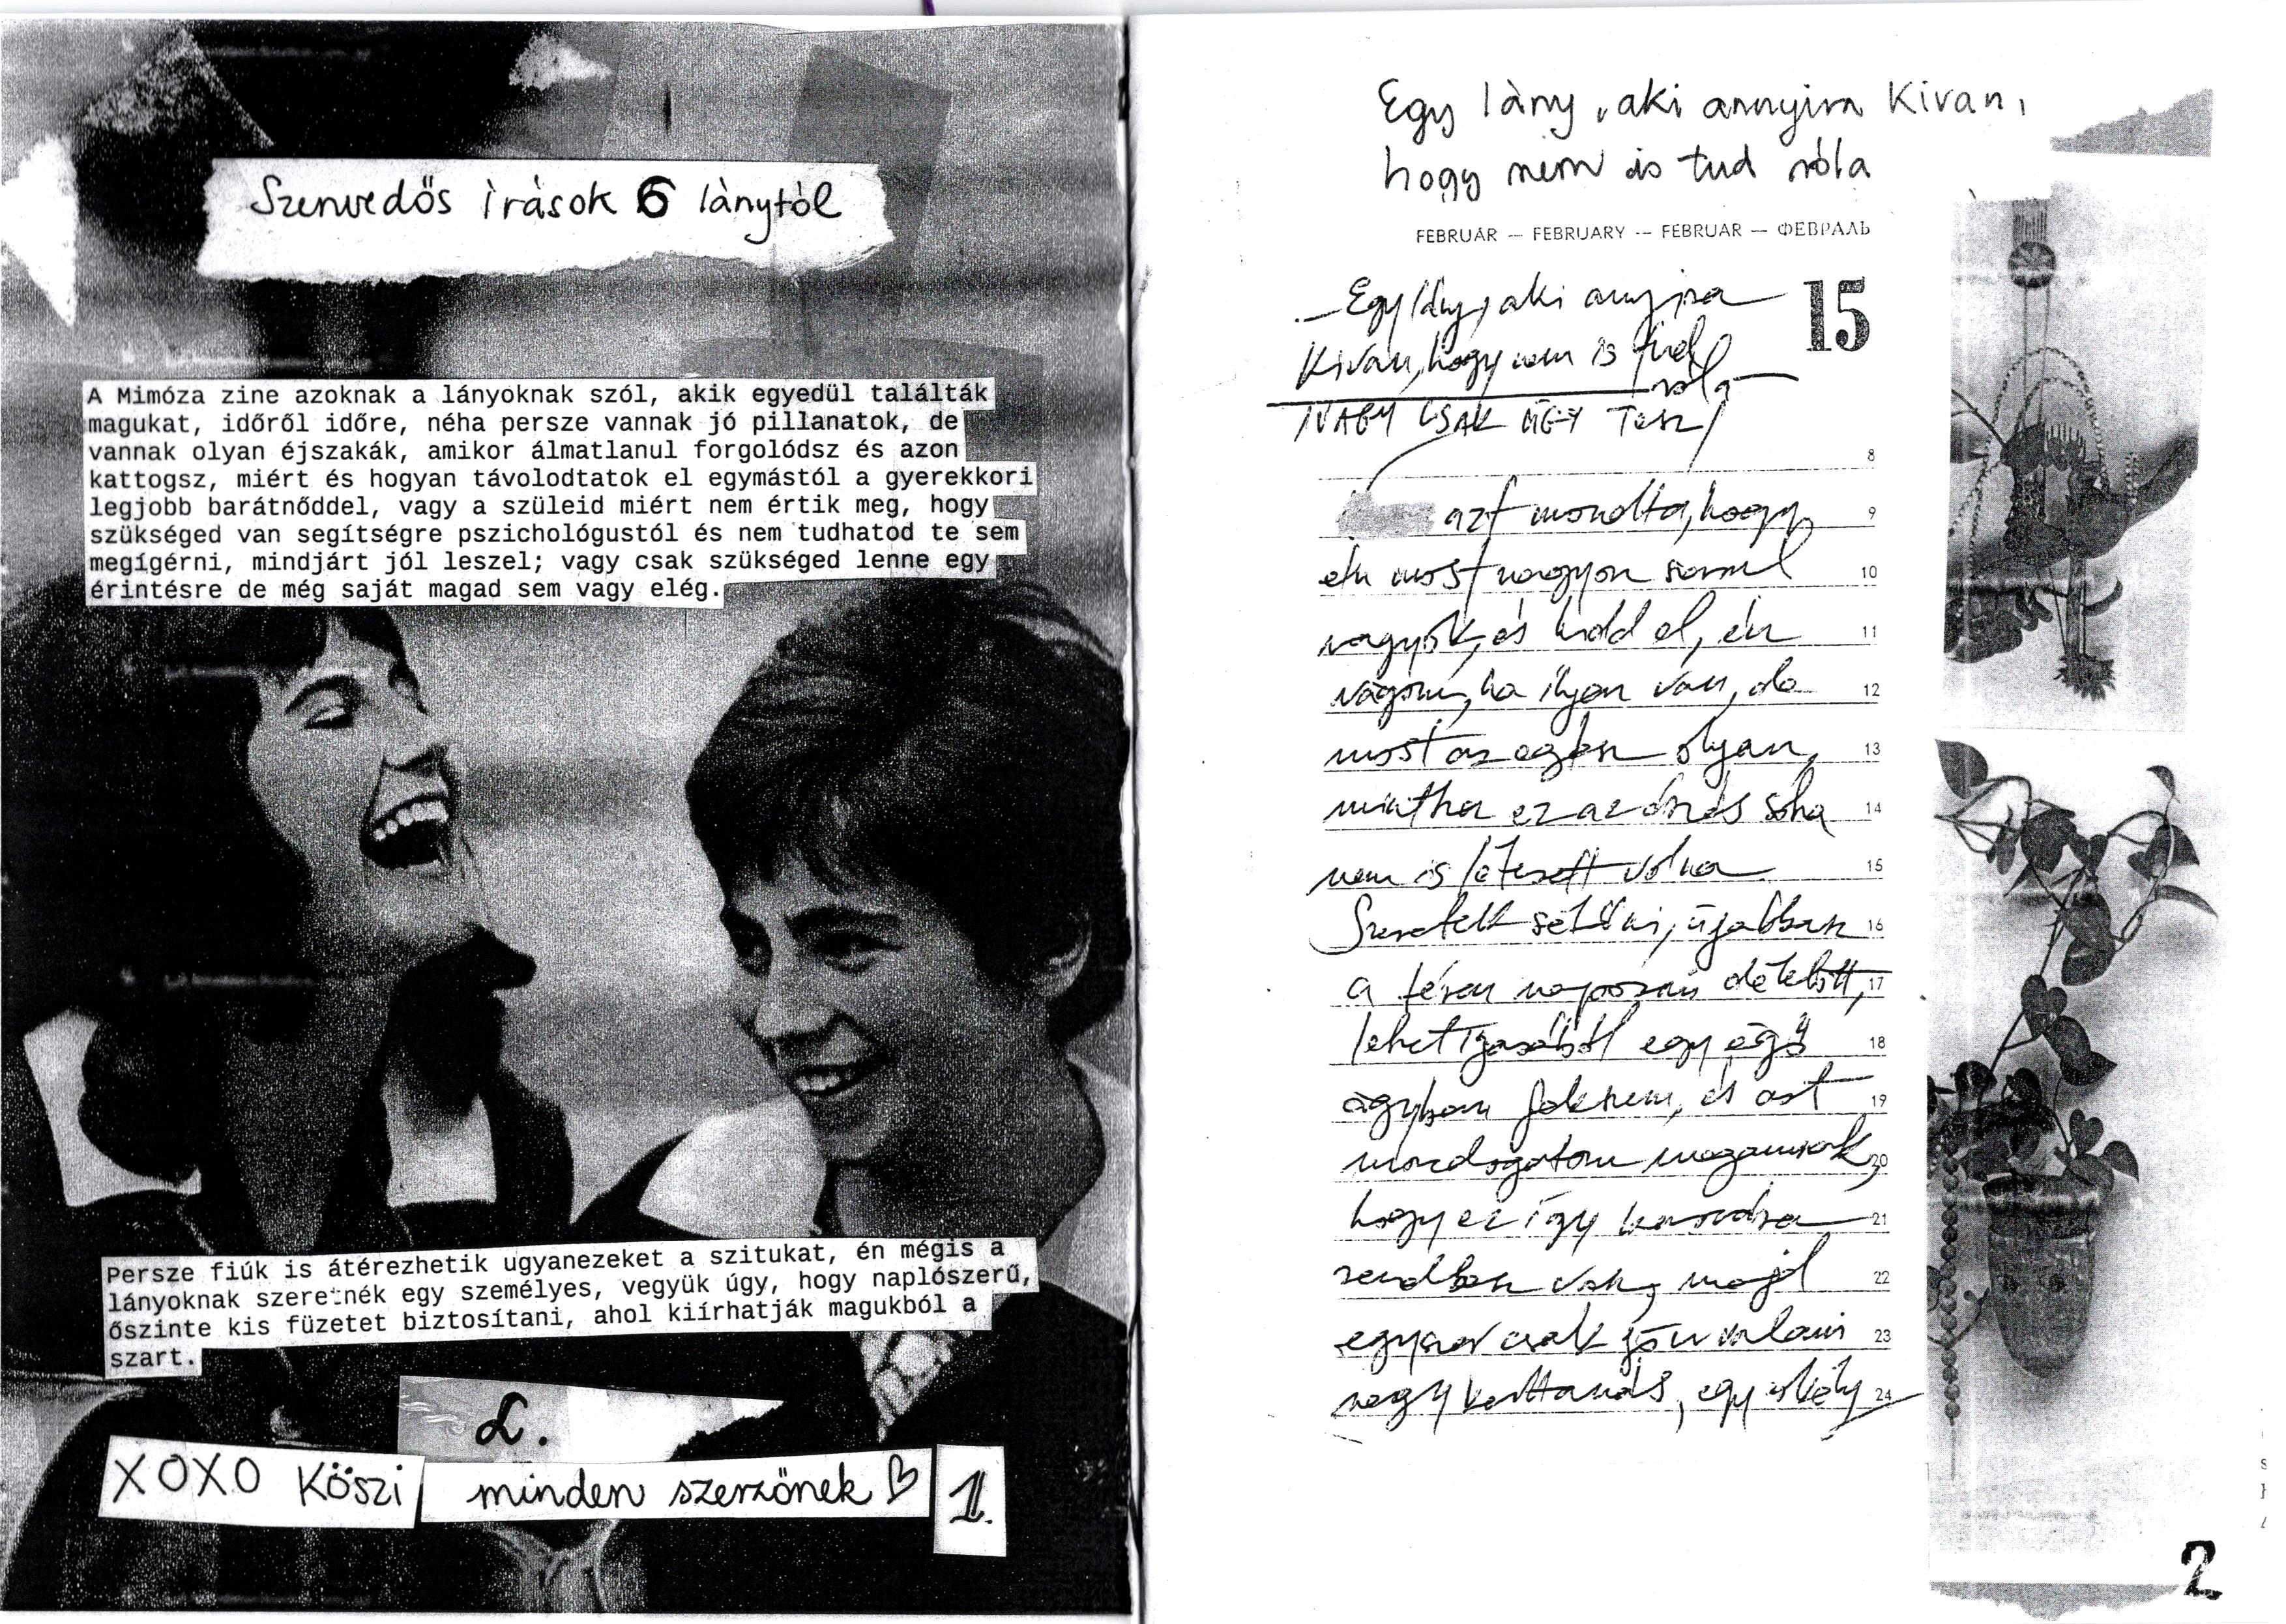 Szenvedős írások 6 lánytól
A Mimóza zine azoknak a lányoknak szól, akik egyedül találták
magukat, időről időre, néha persze vannak jó pillanatok, de
vannak olyan éjszakák, amikor álmatlanul forgolódsz és azon
kattogsz, miért és hogyan távolodtatok el egymástól a gyerekkori
legjobb barátnőddel, vagy a szüleid miért nem értik meg, hogy
szükséged van segítségre pszichológustól és nem tudhatod te sem
megígérni, mindjárt jól leszel; vagy csak szükséged lenne egy
érintésre de még saját magad sem vagy elég.
Persze fiúk is átérezhetik ugyanezeket a szitukat, én mégis a
lányoknak szeretnék egy személyes, vegyük úgy, hogy naplószerű,
őszinte kis füzetet biztosítani, ahol kiírhatják magukból a
szart.
L.
XOXO Köszi minden szerzőnek ♡
1.
Egy lány, aki annyira Kivan,
hogy nem is tud róla
FEBRUÁR — FEBRUARY — FEBRUAR — ФЕВРАЛЬ
15
Egy lány, aki annyira
Kivan, hogy nem is tud
róla
VAGY CSAK ÚGY TESZ
8
azt mondta, hogy 9
én most nagyon rosszul 10
vagyok, és hidd el, én 11
vágom, ha ilyen van, de 12
most az egész olyan, 13
mintha ez az érzés soha 14
nem is létezett volna 15
Szeretek sétálni, újabban 16
a téren napozni délelőtt, 17
lehet igazából egy égő 18
ágyban fekszem, és azt 19
mondogatom magamnak, 20
hogy ez így kurvára 21
rendben van, majd 22
egyszer csak jön valami 23
nagy kattanás, egy 24
2